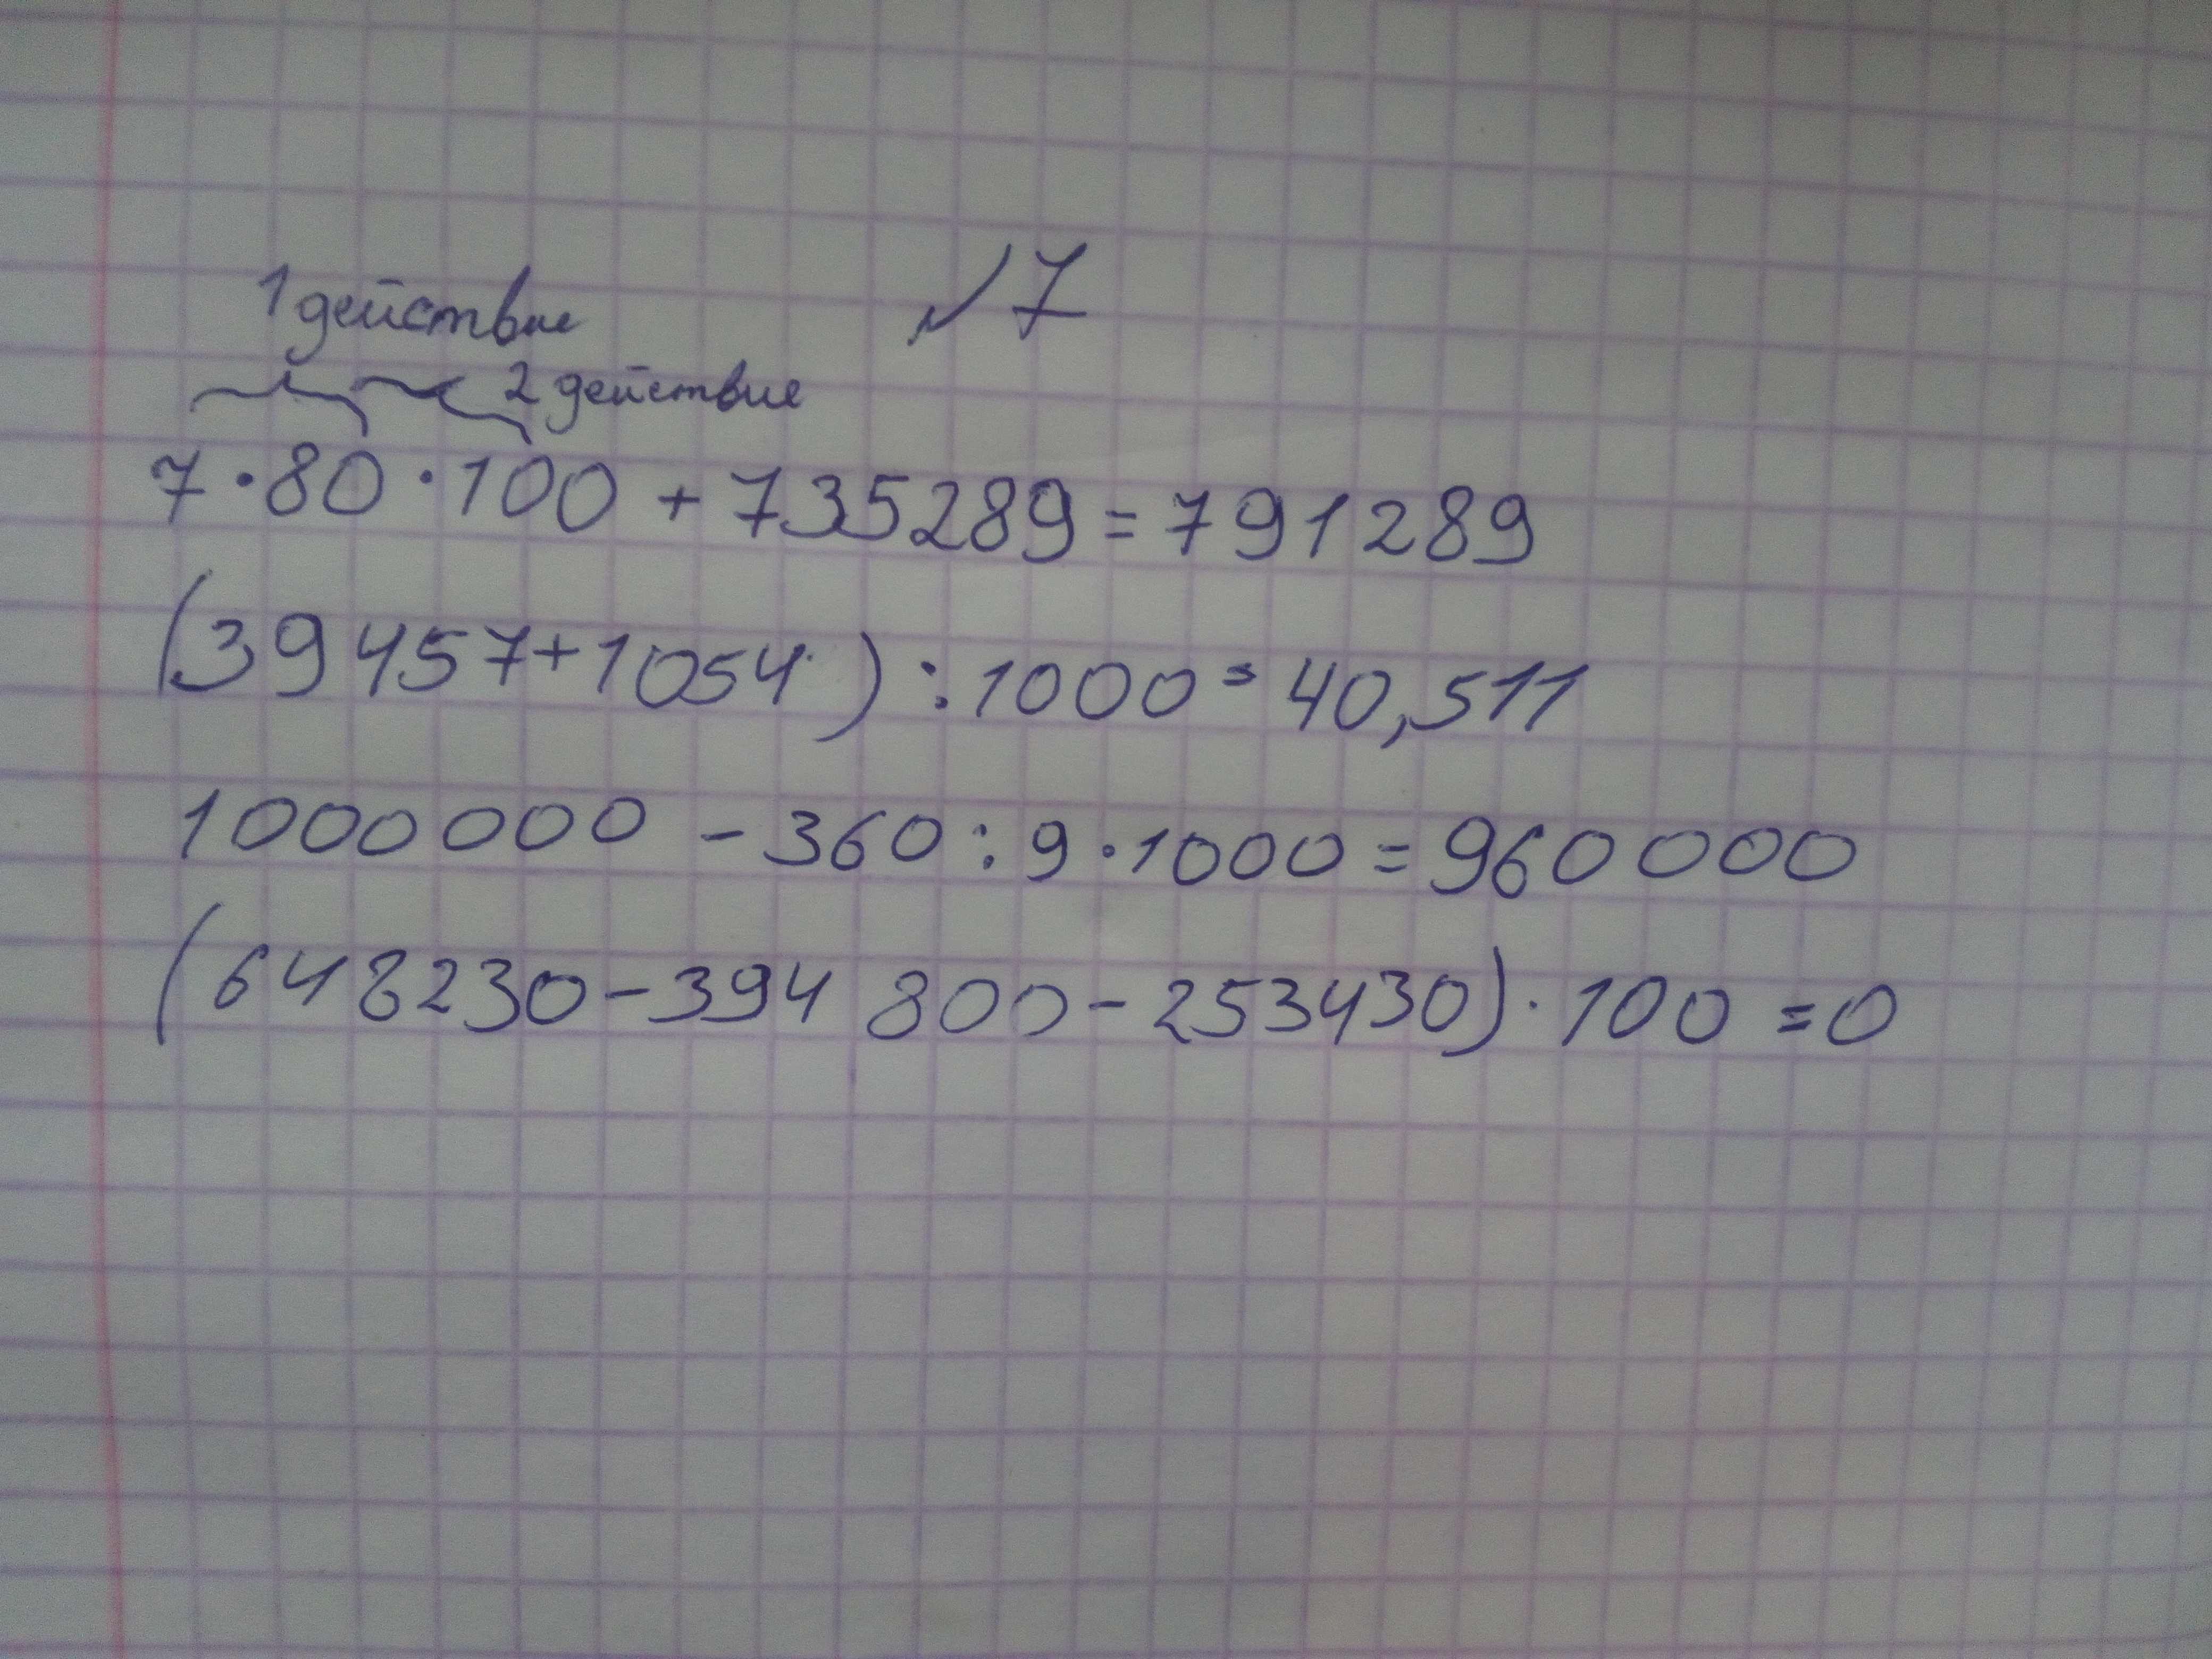 №7
1 действие
2 действие
7·80·100+735289=791289
(39457+1054):1000=40,511
1000000-360:9·1000=960000
(648230-394 800-253430)·100=0